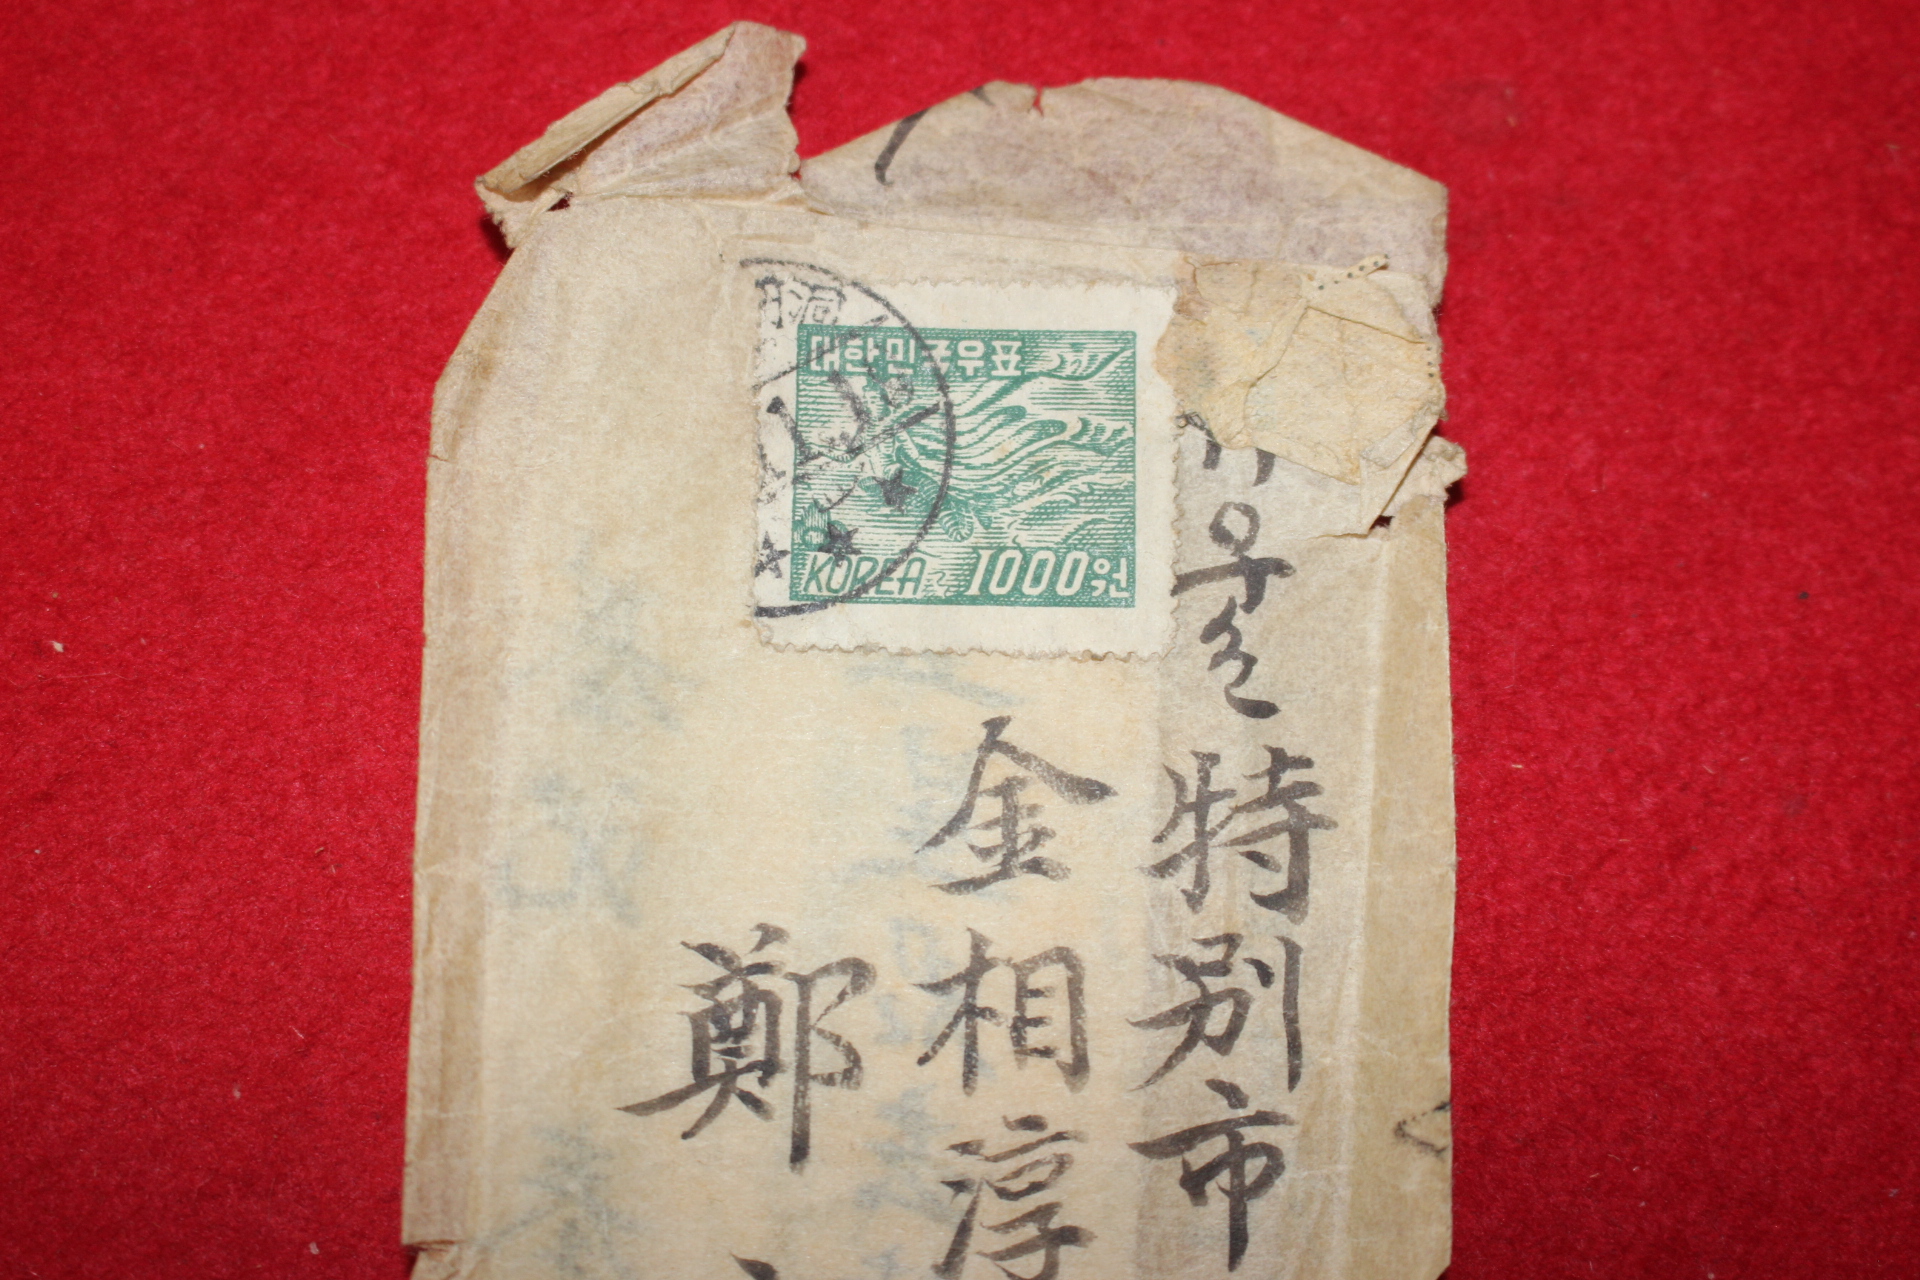 洞
대한민국우표
KOREA 1000원
서울特別市
金相淳
鄭